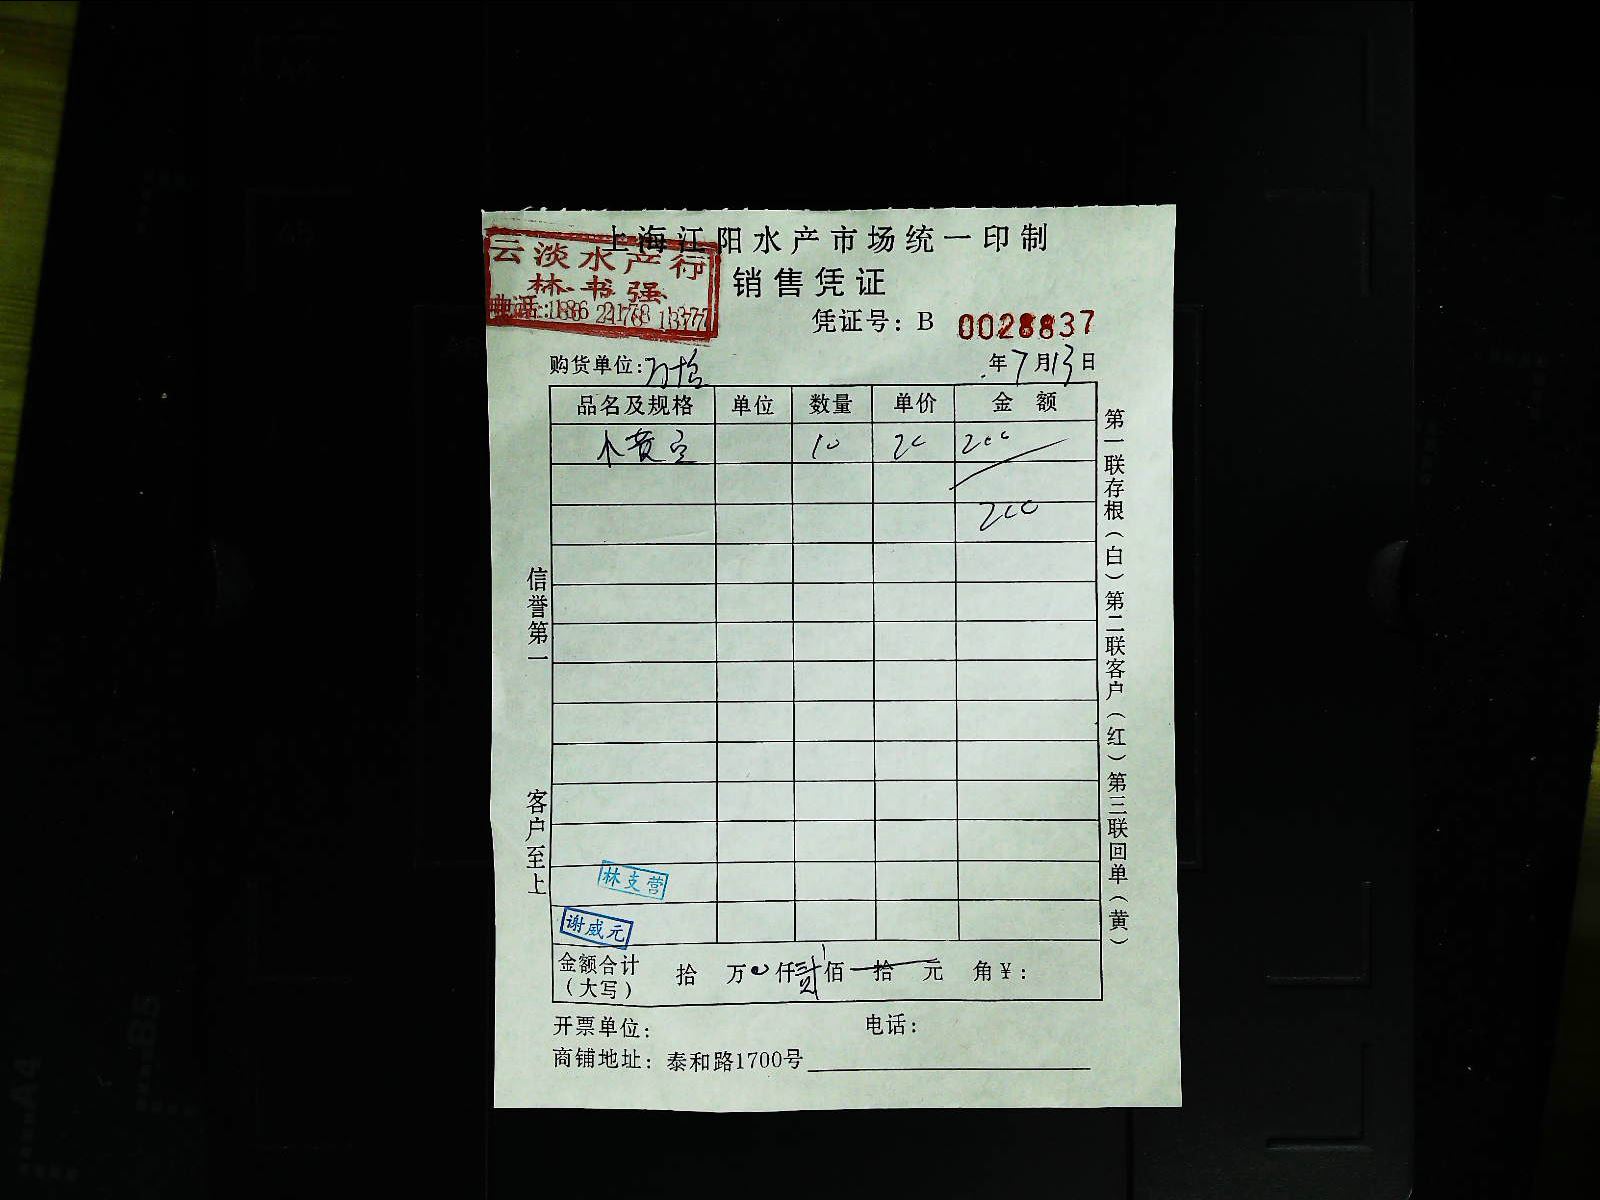 上海江阳水产市场统一印制
云淡水产行
林书强
电话:186 2178 1377
销售凭证
凭证号：B 0028837
购货单位:
年7月13日
品名及规格 单位 数量 单价 金额
10 20 200
200
信誉第一
客户至上
第一联存根（白）第二联客户（红）第三联回单（黄）
林支营
谢威元
金额合计（大写） 拾 万 仟贰佰 拾 元 角¥：
开票单位： 电话：
商铺地址：泰和路1700号